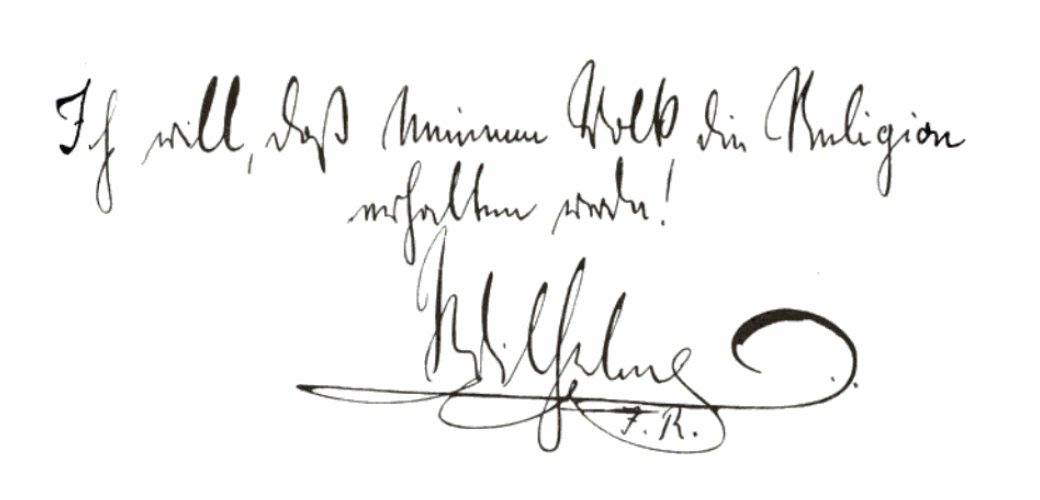 Ich will, daß Meinem Volk die Religion
erhalten werde!
Wilhelm
I. R.